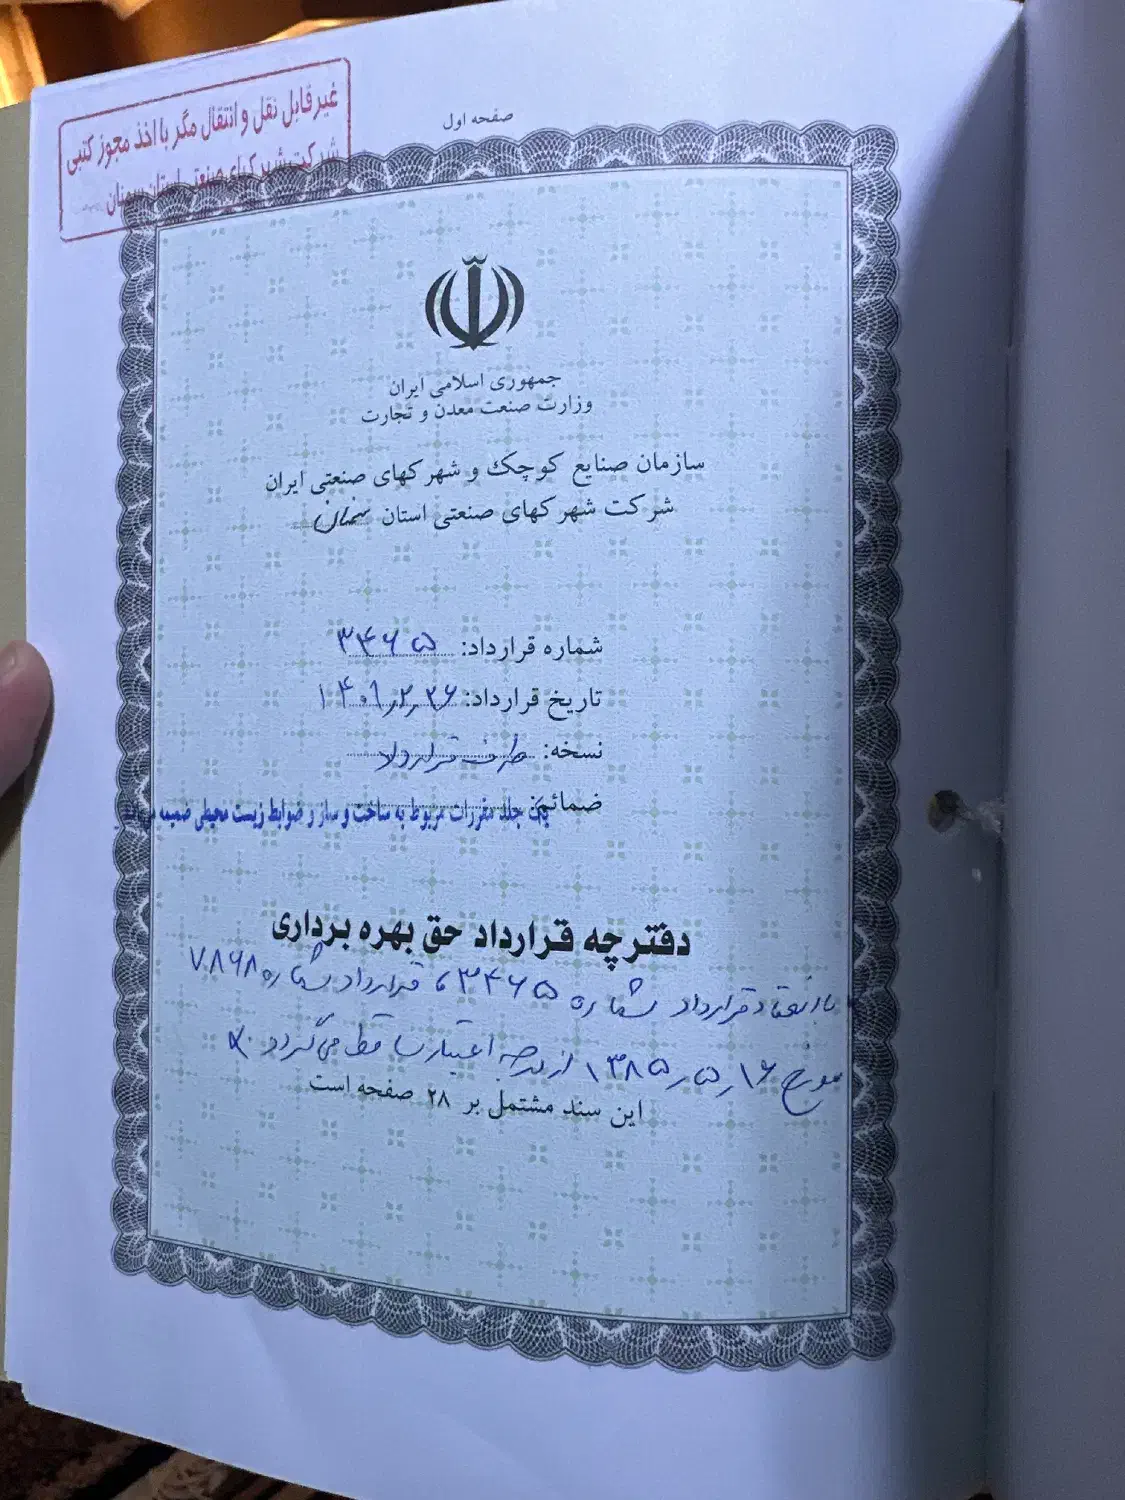 غیرقابل نقل و انتقال مگر با اخذ مجوز کتبی
شرکت شهرکهای صنعتی استان سمنان
صفحه اول
جمهوری اسلامی ایران
وزارت صنعت معدن و تجارت
سازمان صنایع کوچک و شهرکهای صنعتی ایران
شرکت شهرکهای صنعتی استان سمنان
شماره قرارداد: ۳۴۶۵
تاریخ قرارداد: ۱۴۰۱٫۲٫۲۶
نسخه: طرف قرارداد
ضمائم:
یک جلد مقررات مربوط به ساخت و ساز و ضوابط زیست محیطی ضمیمه
دفترچه قرارداد حق بهره برداری
با انعقاد قرارداد شماره ۳۴۶۵، قرارداد شماره ۷۸۶۸
مورخ ۱۳۸۵٫۵٫۱۶ از درجه اعتبار ساقط می گردد
این سند مشتمل بر ۲۸ صفحه است